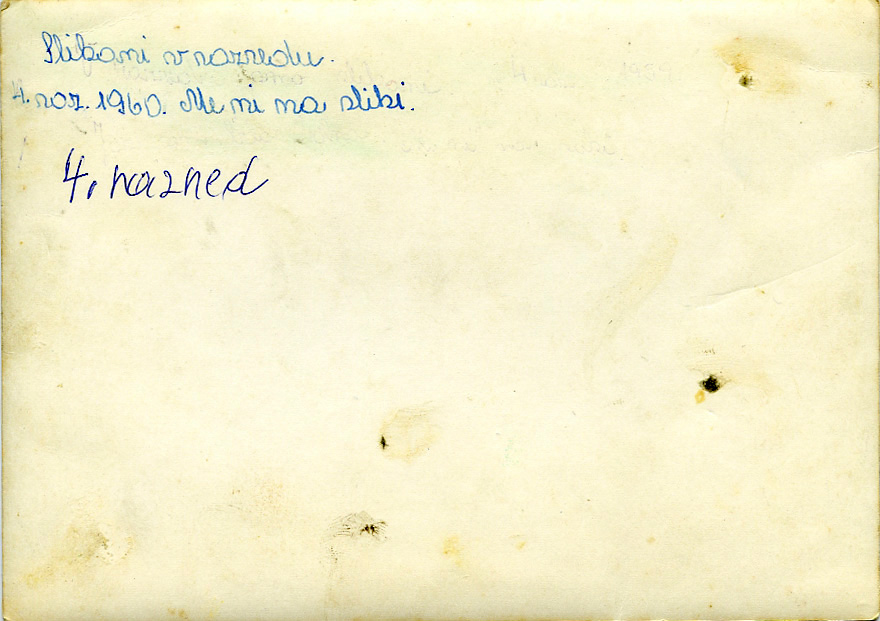 Slikani v razredu.
4. raz. 1960. Me ni na sliki.
4. razred